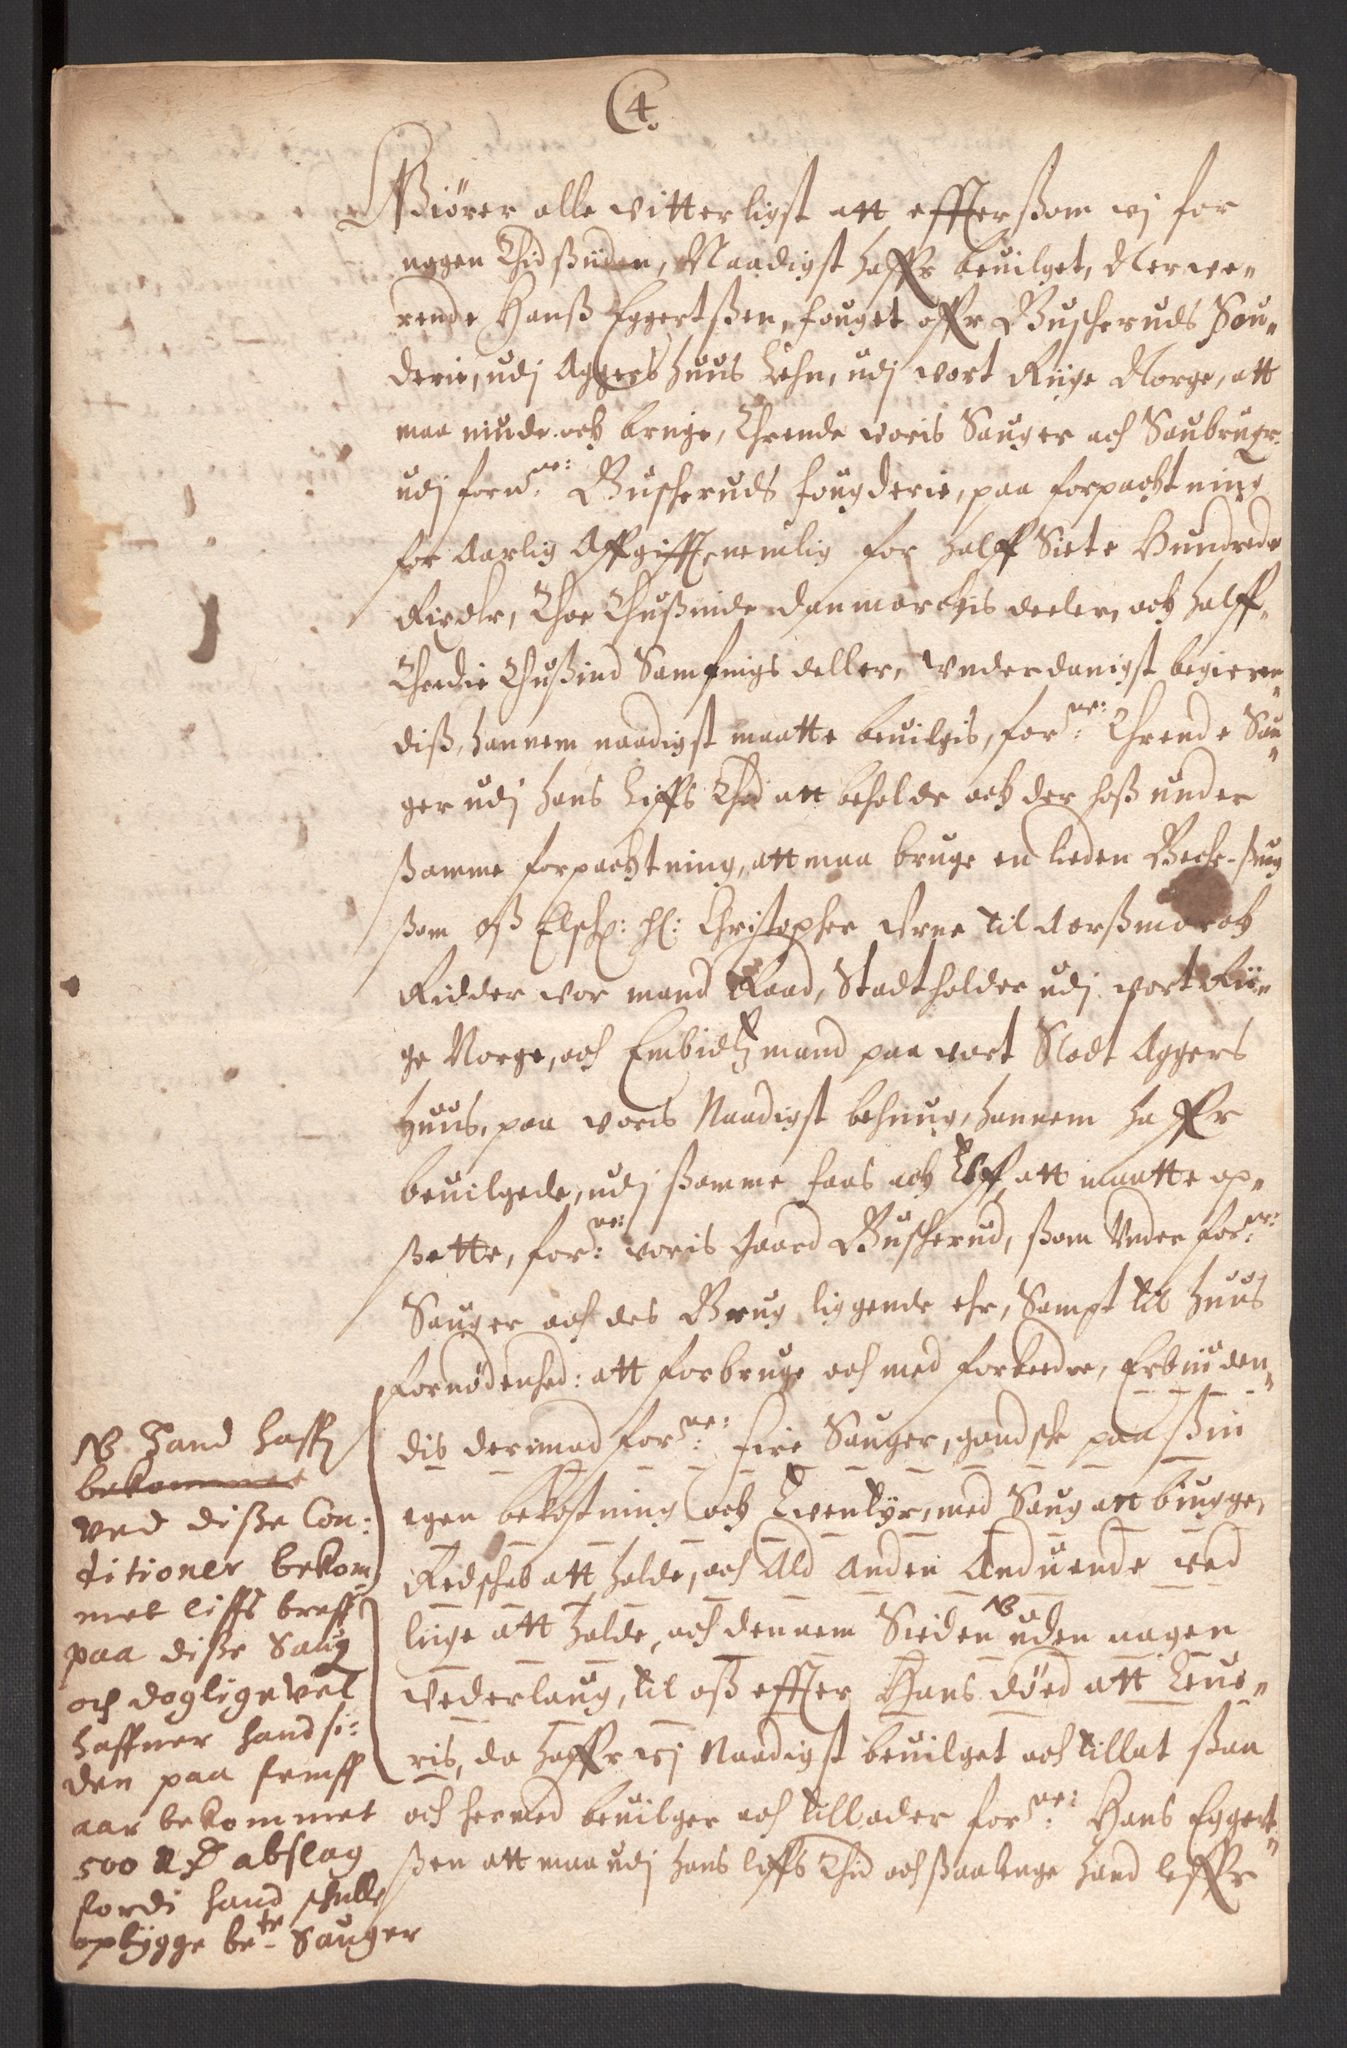 4.
Giörer alle vitterligst att effterßom vj for
nogen Thid ßiiden, Naadigst haffr beuilget, Nerve„
rende Hanß Eggertßen, fouget offr Buscheruds Fou„
derie, udj Aggers huus Lehn, udj vort Riige Norge, att
maa niude och bruge, Thrende voris Sauger och Saubrugr
udj fornne: Buscheruds fougderie, paa forpachtning
for Aarlig Affgifft, nemlig for halff Siete Hundrede
Rixdlr, Thoe Thußinde danmarchis deeler, och halff„
Thredie Thußind Samfings deller, Underdanigst begieren„
diß, hannem naadigst maatte beuilgis, forne: Thrende Sau„
ger udj hans Liffs Thid att beholde och der hoß under
ßamme forpachtning, att maa bruge en lieden Bech-ßaug
ßom oß Elsch: Hl: Christopher Urne til Aarßmarck
Ridder vor mand Raad, Stadtholder udj vort Rii„
ge Norge, och Embidtzmand paa vort Slodt Aggers
huus, paa voris Naadigst behaug, hannem haffr
beuilgede, udj ßamme faas och Elff att maatte op„
ßette, forne: voris Gaard Buscherud, ßom Under forne:
Sauger och des Brug liggende ehr, Sampt til huus
fornödenhed: att forbruge och med forbedre, Erbiuden„
dis derimod forne: fire Sauger, gandsche paa ßin
egen bekostning och Euentyr, med Saug att biugge,
Redschab att holde, och Ald Anden Anduende ved
liige att holde, och dennem Sieden NB uden nagen
vederlaug, til oß effter Hans död att Leue„
ris, da haffr vj Naadigst beuilget och tillat ßaa
och hermed beuilger och tillader forne: Hans Eggert„
ßen att maa udj hans liffs Thid och ßaalenge hand leffr
NB Hand haffr
bekommet
Ved diße Con:
ditioner bekom
met liffs breff
paa diße Saug
och dogligevel
haffuer hand si:
den paa fremff
aar bekommet
500 Rd abslag
fordi hand schulle
opbygge bete Sauger